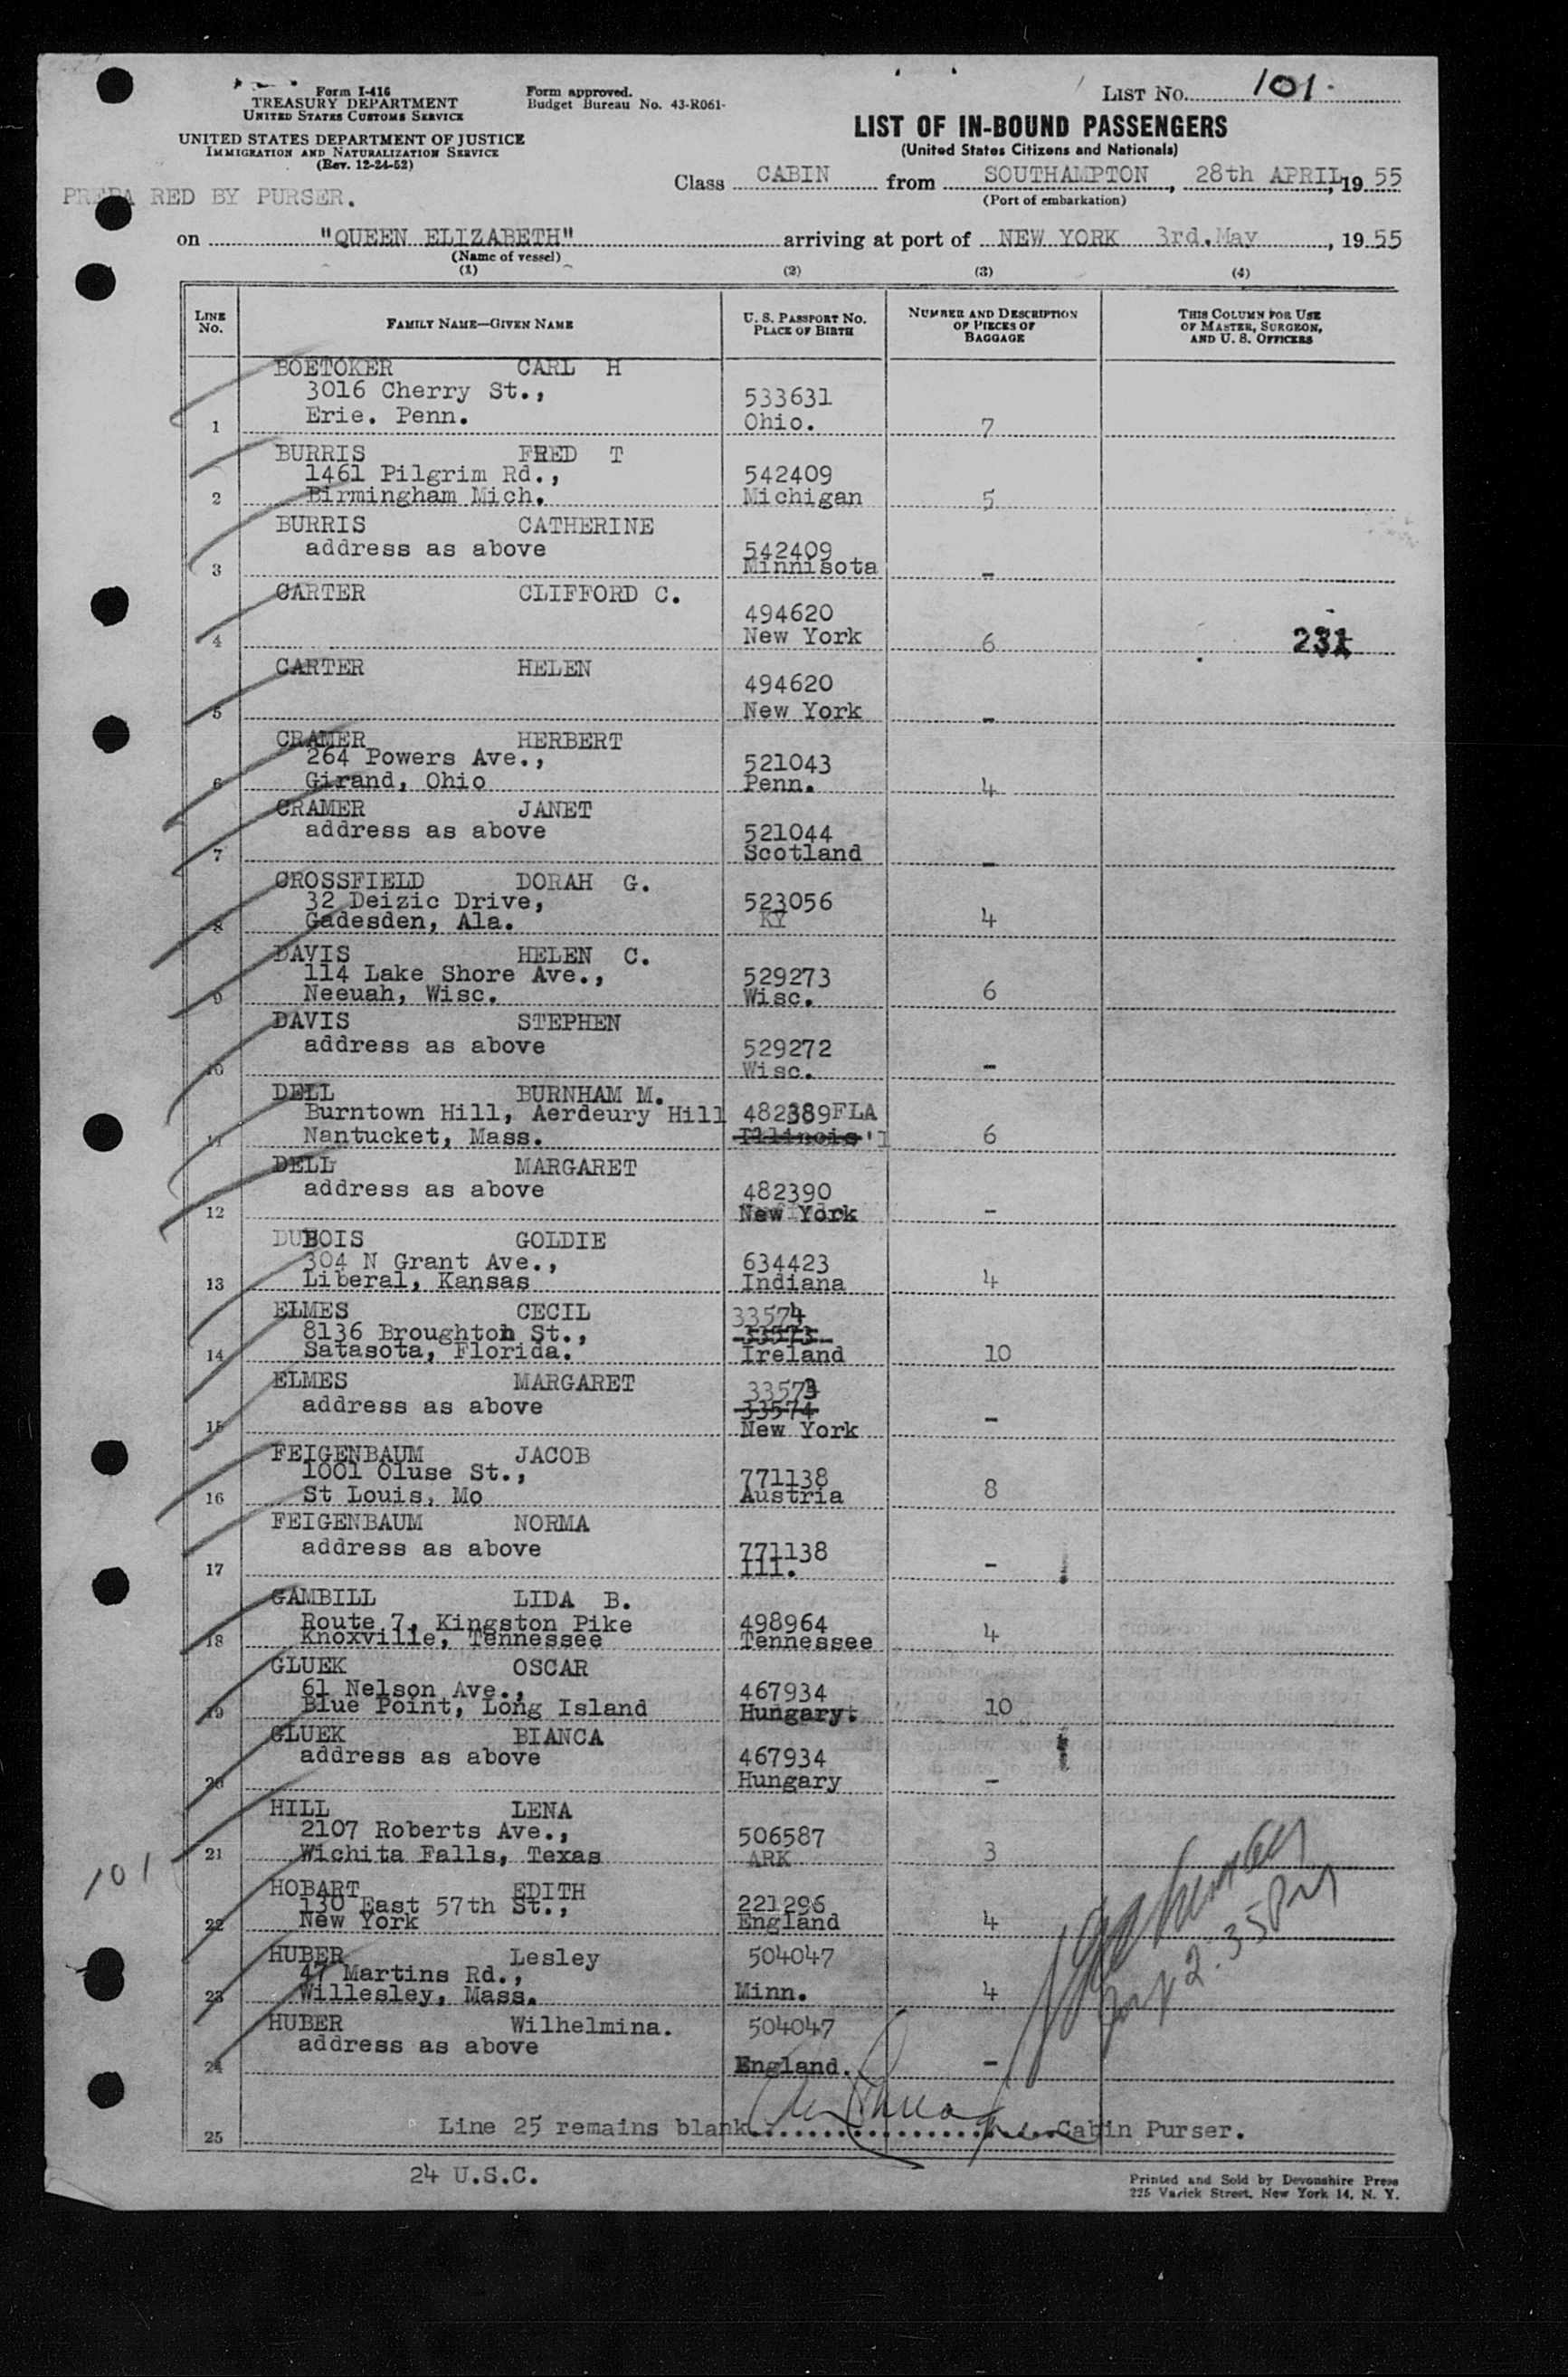 Form I-416
TREASURY DEPARTMENT
UNITED STATES CUSTOMS SERVICE
UNITED STATES DEPARTMENT OF JUSTICE
IMMIGRATION AND NATURALIZATION SERVICE
(Rev. 12-24-52)
Form approved.
Budget Bureau No. 43-R061-
LIST NO. 101.
LIST OF IN-BOUND PASSENGERS
(United States Citizens and Nationals)
PREPA RED BY PURSER.
Class CABIN from SOUTHAMPTON, 28th APRIL, 1955
(Port of embarkation)
on "QUEEN ELIZABETH" arriving at port of NEW YORK 3rd.May, 1955
(Name of vessel)
(1) (2) (3) (4)
LINE NO.
FAMILY NAME—GIVEN NAME
U. S. PASSPORT NO. PLACE OF BIRTH
NUMBER AND DESCRIPTION OF PIECES OF BAGGAGE
THIS COLUMN FOR USE OF MASTER, SURGEON, AND U. S. OFFICERS
BOETOKER CARL H
3016 Cherry St., 533631
1 Erie. Penn. Ohio. 7
BURRIS FRED T
1461 Pilgrim Rd., 542409
2 Birmingham Mich. Michigan 5
BURRIS CATHERINE
address as above 542409
3 Minnisota -
CARTER CLIFFORD C.
494620
4 New York 6 231
CARTER HELEN
494620
5 New York -
CRAMER HERBERT
264 Powers Ave., 521043
6 Girand, Ohio Penn. 4
CRAMER JANET
address as above 521044
7 Scotland -
CROSSFIELD DORAH G.
32 Deizic Drive, 523056
8 Gadesden, Ala. KY 4
DAVIS HELEN C.
114 Lake Shore Ave., 529273
9 Neeuah, Wisc. Wisc. 6
DAVIS STEPHEN
address as above 529272
10 Wisc. -
DELL BURNHAM M.
Burntown Hill, Aerdeury Hill 482389 FLA
11 Nantucket, Mass. Illinois'l 6
DELL MARGARET
address as above 482390
12 New York -
DUBOIS GOLDIE
304 N Grant Ave., 634423
13 Liberal, Kansas Indiana 4
ELMES CECIL 33574
8136 Broughton St., 33573
14 Satasota, Florida. Ireland 10
ELMES MARGARET 33573
address as above 33574
15 New York -
FEIGENBAUM JACOB
1001 Oluse St., 771138
16 St Louis, Mo Austria 8
FEIGENBAUM NORMA
address as above 771138
17 Ill. -
GAMBILL LIDA B.
Route 7, Kingston Pike 498964
18 Knoxville, Tennessee Tennessee 4
GLUEK OSCAR
61 Nelson Ave., 467934
19 Blue Point, Long Island Hungary. 10
GLUEK BIANCA
address as above 467934
20 Hungary -
HILL LENA
2107 Roberts Ave., 506587
21 Wichita Falls, Texas ARK 3
101
HOBART EDITH
130 East 57th St., 221296
22 New York England 4
HUBER Lesley 504047
47 Martins Rd.,
23 Willesley, Mass. Minn. 4
2.35PM
HUBER Wilhelmina. 504047
address as above
24 England. -
25 Line 25 remains blank. Cabin Purser.
24 U.S.C.
Printed and Sold by Devonshire Press
225 Varick Street, New York 14, N. Y.